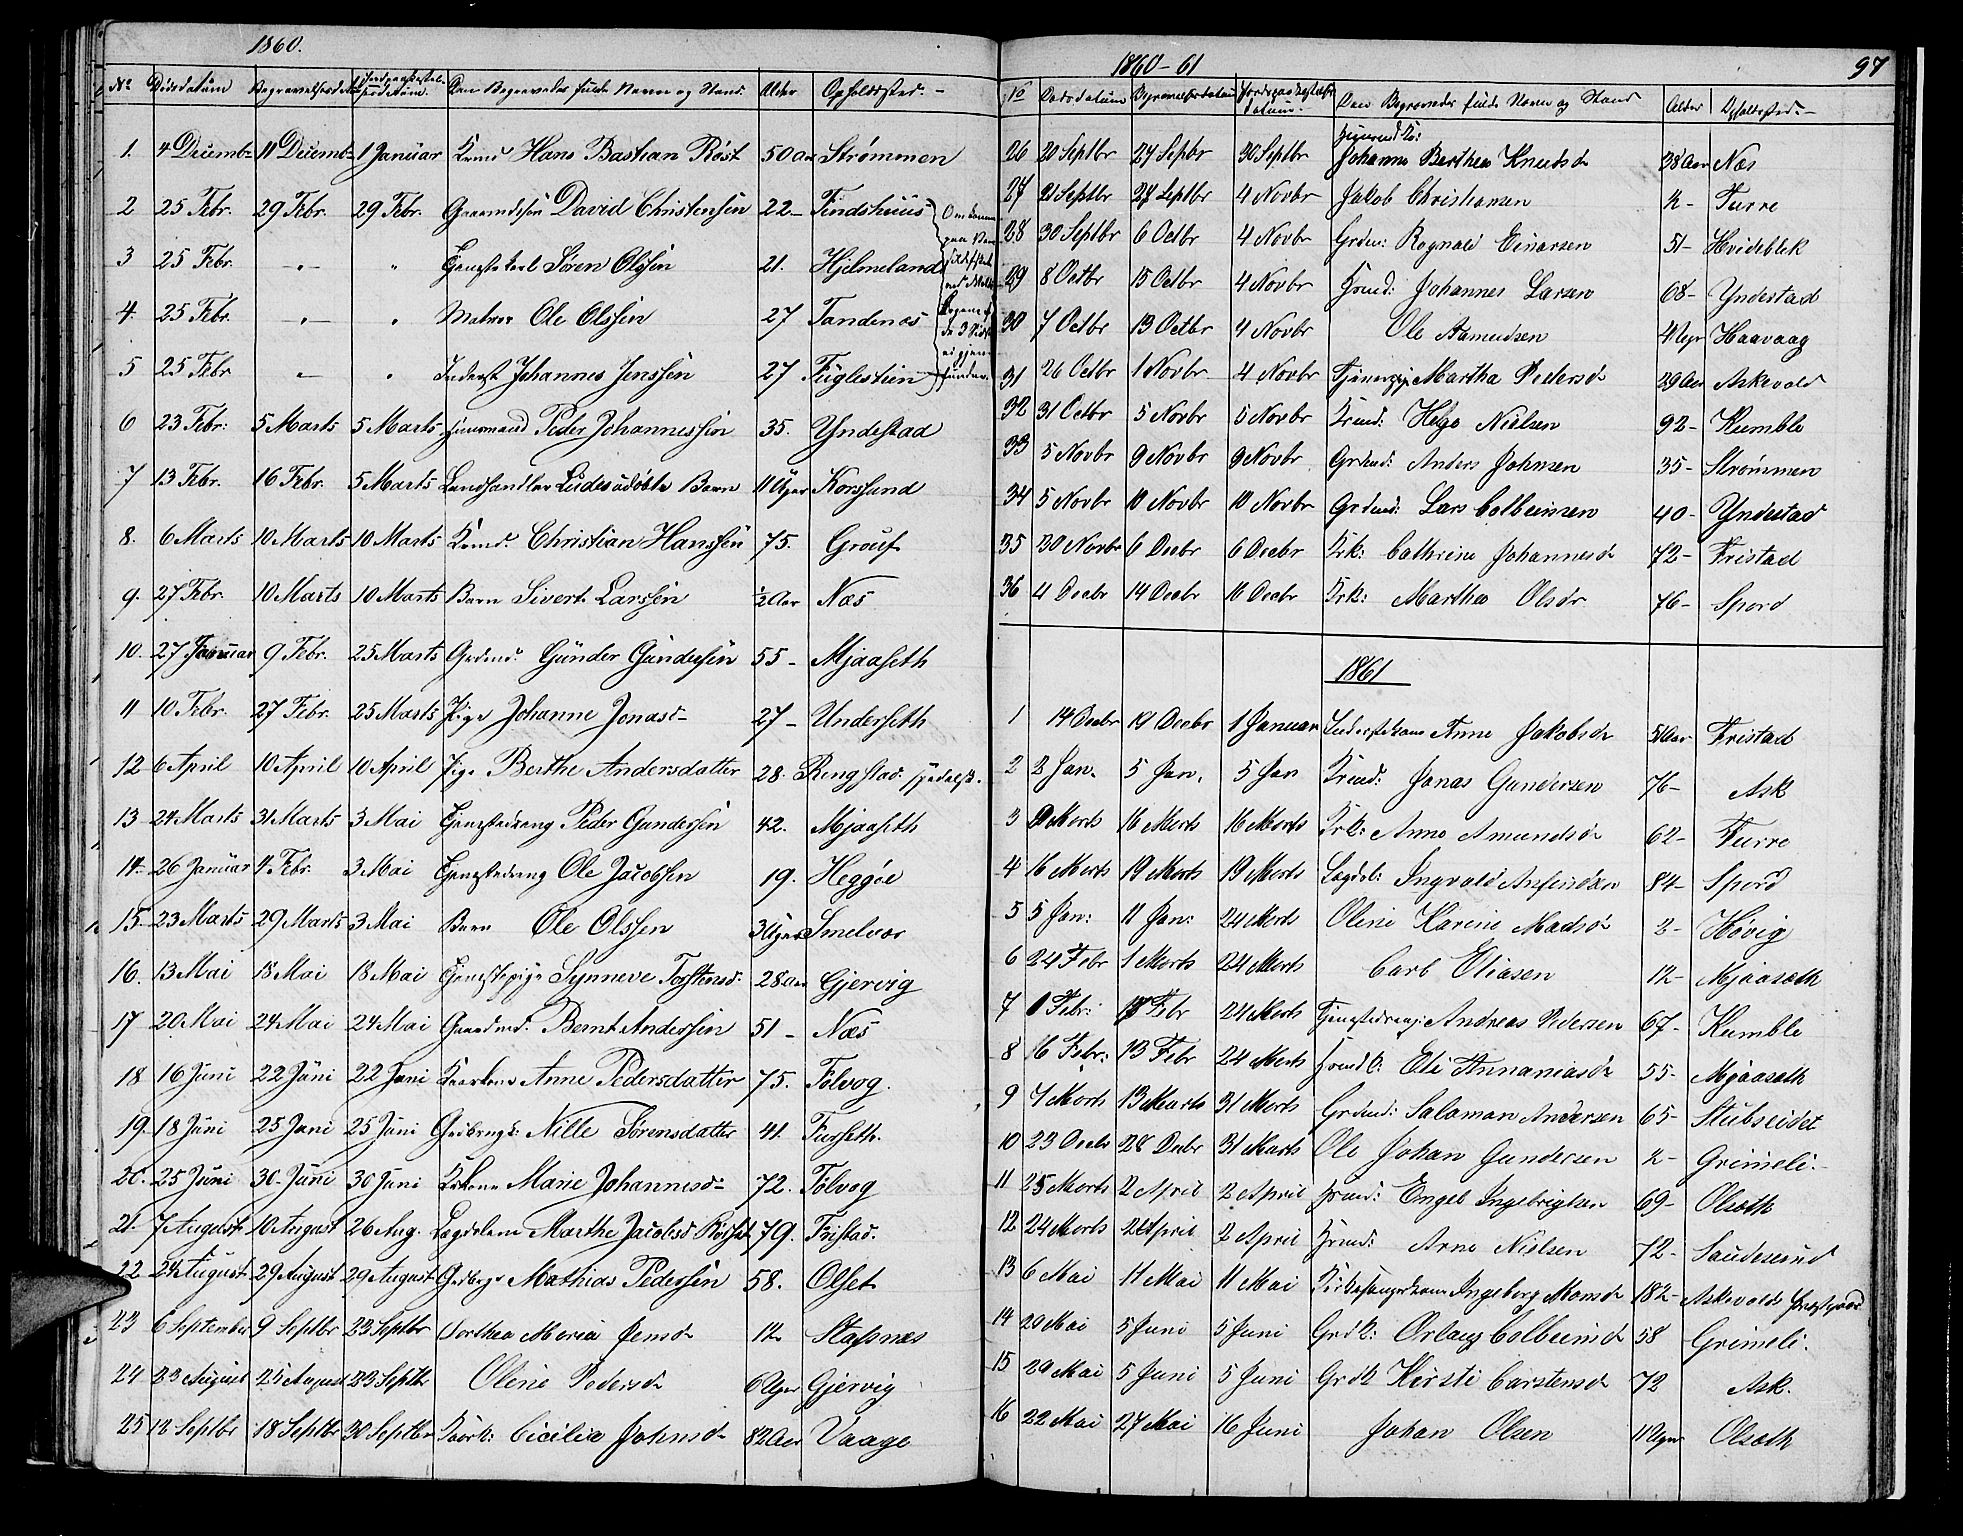 1860.
No Dødsdatum Begravelsesdat. Jordpaakastelsesdatum. Den Begravedes fulde Navn og Stand. Alder Opholdssted.-
1. 4 Decemb- 11 Decemb- 1 Januar Kmd Hans Bastian Røst 50 Aar Strømmen
2 25 Febr. 29 Febr. 29 Febr. Gaardmdssøn David Christensen 22- Findshuus
3 25 Febr. -"- " Tjenestekarl Søren Olssen 21. Hjelmeland
4. 25 Febr. -"- " Matros Ole Olssen 27 Tandenæs
5 25 Febr. " Inderst Johannes Jenssen 27 Fuglestien
6 23 Febr: 5 Marts 5 Marts Huusmand Peder Johannessen 35. Yndestad
7 13 Febr. 16 Febr. 5 Marts Landhandler Ludes udøbte Barn 11 Uger Korssund
8. 6 Marts 10 Marts 10 Marts Kmd. Christian Hanssen 75. Grouf
9. 27 Febr. 10 Marts 10 Marts Barn Sivert Larssen ½ Aar Næs
10. 27 Januar 9 Febr. 25 Marts Grdmd. Gunder Gundersen 55- Mjaaseth
11 10 Febr. 27 Febr. 25 Marts Pige Johanne Jonasd- 27- Underseth
12 6 April 10 April 10 April Pige Berthe Andersdatter 28. Ringstad
13 24 Marts 31 Marts 3 Mai Tjenestedreng Peder Gundersen 42. Mjaaseth
14- 26 Januar 4 Febr. 3 Mai Tjenestedreng Ole Jacobsen 19. Heggøe
15. 23 Marts 29 Marts 3 Mai Barn Ole Olssen 3 Uger Smelvær
16. 13 Mai 18 Mai 18 Mai Tjenestepige Synneve Torstensd: 28 Aar Gjervig
17 20 Mai 24 Mai 24 Mai Gaardmd. Bernt Anderssen 51- Næs
18 16 Juni 22 Juni 22 Juni Kaarkone Anne Pedersdatter 75. Folvog.
19. 18 Juni 25 Juni 25 Juni Nille Sørensdatter 41. Furseth.
20. 25 Juni 30 Juni 30 Juni Marie Johannesd- 72. Folvog
21. 7 August 10 August 26 Aug. Lægdslem Marthe Jacobsd 79. Fristad.
22 24 August 29 August 29 August Mathias Pedersen 58. Olset
23 6 September 9 Septbr 23 Septbr Dorthea Maria Jensd 12 Stafsnæs
24 23 August 25 August 23 Septbr Oline Pedersd 6 Uger Gjervig
25 12 Septbr 18 Septbr 30 Septbr Kaark: Cicilia Johnsd 82 Aar Vaage
1860-61
97
No Dødsdatum Begravelsesdatum Jordpaakastelsesdatum. Den Begravedes fulde Navn og Stand Alder Opholdssted.-
26 20 Septbr 24 Septbr 30 Septbr Johanne Berthea Knudsd 38 Aar Næs
27 21 Septbr 27 Septbr 4 Novbr Jakob Christiansen 2- Furre
28 30 Septbr 6 Octbr 4 Novbr Grdm: Rognald Einarsen 51- Hvideblik
29 8 Octbr 15 Octbr 4 Novbr Hsmd: Johannes Larsen 68- Yndestad
30 7 Octbr 13 Octbr 4 Novbr Ole Aamundsen 4 Uger Haavaag
31 26 Octbr 1 Novbr 4 Novbr Martha Pedersd 29 Aar Askevold
32 31 Octbr 5 Novbr 5 Novbr Krmd: Helge Nielsen 92- Kumble
33 5 Novbr 9 Novbr 9 Novbr Grdmd: Anders Johnsen 35- Strømmen
34 5 Novbr 10 Novbr 10 Novbr Grdmd: Lars Colbeinsen 40- Yndestad
35 30 Novbr 6 Decbr 6 Decbr Krk: Cathrine Johannesd 72- Fristad
36 4 Decbr 14 Decbr 16 Decbr Krk: Martha Olsdr 76- Spord
1861
1 14 Decbr 19 Decbr 1 Januar Anne Jakobsd 51 Aar Fristad
2 2 Jan. 5 Jan. 5 Jan Krmd: Jonas Gundersen 76- Ask
3 9 Marts 16 Marts 16 Marts Krk: Anne Amundsd 62- Furre
4 16 Marts 19 Marts 19 Marts Lægdsl: Ingvold Anfindsen 84- Spord
5 5 Jan: 11 Jan: 24 Marts Oline Karine Madsd 2- Høvig
6 24 Febr 1 Marts 24 Marts Carl Eliasen 12- Mjaaseth
7 1 Febr: 17 Febr 24 Marts Tjenestedreng: Andreas Pedersen 67- Kumble
8 16 Febr: 13 Febr 24 Marts Eli Annaniasd 55- Mjaaseth
9 7 Marts 13 Marts 31 Marts Grdmd: Salomon Andersen 65- Stubseidet
10 23 Decbr 28 Decbr 31 Marts Ole Johan Gundersen 2- Grimeli.-
11 25 Marts 2 April 2 April Engel Ingebrigtsen 69- Olseth
12 24 Marts 2 April 2 April Arne Nielsen 72- Saudesund
13 6 Mai 11 Mai 11 Mai Kirkesangerkone Ingeborg Monsd 82- Askevold
14 29 Mai 5 Juni 5 Juni Grdk: Orlaug Colbeinsd 58 Grimeli.
15 29 Mai 5 Juni 5 Juni Grdk Kirsti Carstensd 72 Ask.
16 22 Mai 27 Mai 16 Juni Johan Olsen 11 Uger Olseth